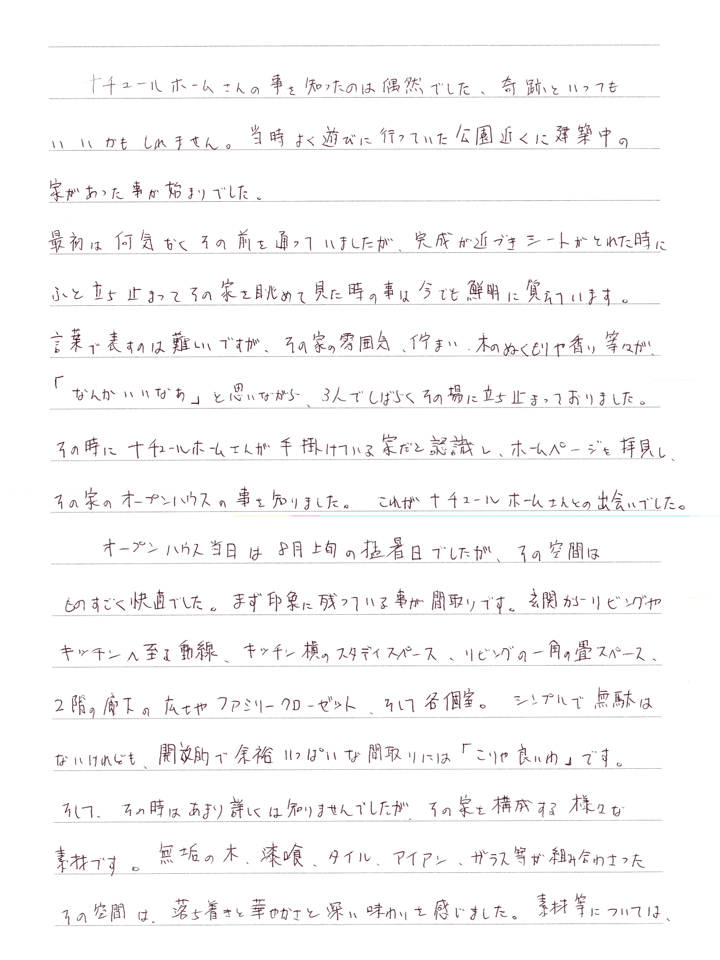 ナチュールホームさんの事を知ったのは偶然でした、奇跡といっても
いいかもしれません。当時よく遊びに行っていた公園近くに建築中の
家があった事が始まりでした。
最初は何気なくその前を通っていましたが、完成が近づきシートがとれた時に
ふと立ち止まってその家を眺めて見た時の事は今でも鮮明に覚えています。
言葉で表すのは難しいですが、その家の雰囲気、佇まい、木のぬくもりや香り等々が、
「なんかいいなあ」と思いながら、3人でしばらくその場に立ち止まっておりました。
その時にナチュールホームさんが手掛けている家だと認識し、ホームページを拝見し、
その家のオープンハウスの事を知りました。これがナチュールホームさんとの出会いでした。
オープンハウス当日は8月上旬の猛暑日でしたが、その空間は
ものすごく快適でした。まず印象に残っている事が間取りです。玄関からリビングや
キッチンへ至る動線、キッチン横のスタディスペース、リビングの一角の畳スペース、
2階の廊下の広さやファミリークローゼット、そして各個室。シンプルで無駄は
ないけれども、開放的で余裕いっぱいな間取りには「こりゃ良いわ」です。
そして、その時はあまり詳しくは知りませんでしたが、その家を構成する様々な
素材です。無垢の木、漆喰、タイル、アイアン、ガラス等が組み合わさった
その空間は、落ち着きと華やかさと深い味わいを感じました。素材等については、